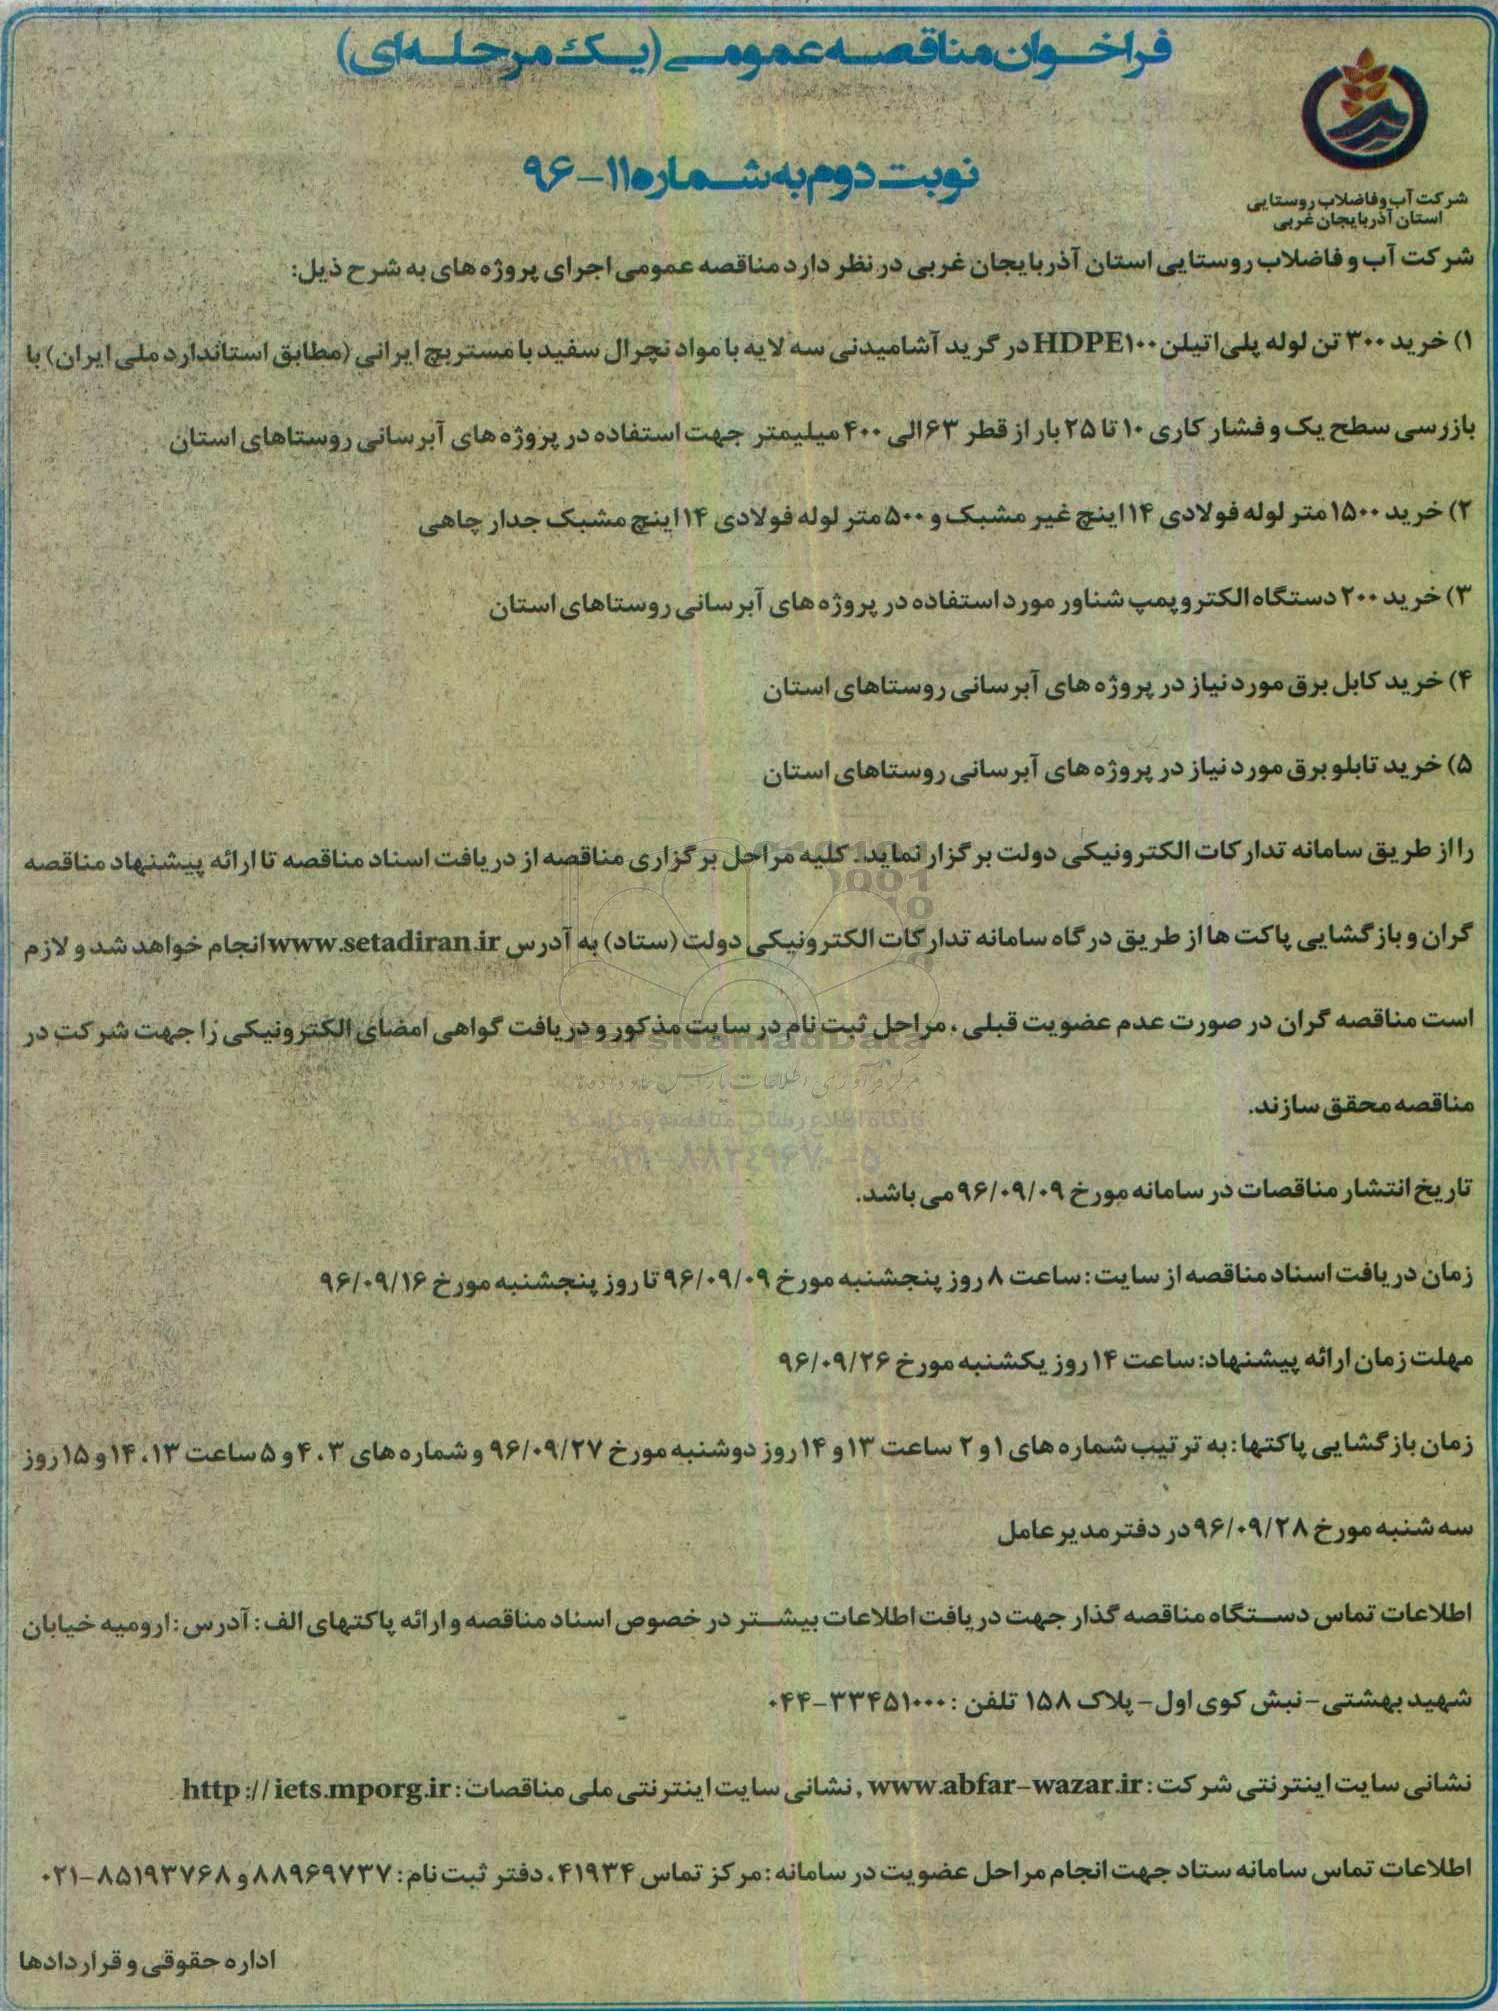 فراخوان مناقصه عمومی (یک مرحله‌ای)
نوبت دوم به شماره ۱۱-۹۶
شرکت آب و فاضلاب روستایی
استان آذربایجان غربی
شرکت آب و فاضلاب روستایی استان آذربایجان غربی در نظر دارد مناقصه عمومی اجرای پروژه های به شرح ذیل:
۱) خرید ۳۰۰ تن لوله پلی اتیلن HDPE۱۰۰ در گرید آشامیدنی سه لایه با مواد نچرال سفید با مستربچ ایرانی (مطابق استاندارد ملی ایران) با
بازرسی سطح یک و فشار کاری ۱۰ تا ۲۵ بار از قطر ۶۳ الی ۴۰۰ میلیمتر جهت استفاده در پروژه های آبرسانی روستاهای استان
۲) خرید ۱۵۰۰ متر لوله فولادی ۱۴ اینچ غیر مشبک و ۵۰۰ متر لوله فولادی ۱۴ اینچ مشبک جدار چاهی
۳) خرید ۲۰۰ دستگاه الکتروپمپ شناور مورد استفاده در پروژه های آبرسانی روستاهای استان
۴) خرید کابل برق مورد نیاز در پروژه های آبرسانی روستاهای استان
۵) خرید تابلو برق مورد نیاز در پروژه های آبرسانی روستاهای استان
را از طریق سامانه تدارکات الکترونیکی دولت برگزار نماید. کلیه مراحل برگزاری مناقصه از دریافت اسناد مناقصه تا ارائه پیشنهاد مناقصه
گران و بازگشایی پاکت ها از طریق درگاه سامانه تدارکات الکترونیکی دولت (ستاد) به آدرس www.setadiran.ir انجام خواهد شد و لازم
است مناقصه گران در صورت عدم عضویت قبلی ، مراحل ثبت نام در سایت مذکور و دریافت گواهی امضای الکترونیکی را جهت شرکت در
مناقصه محقق سازند.
ParsNamadData
۰۲۱-۸۸۳۴۹۶۷۰-۵
تاریخ انتشار مناقصات در سامانه مورخ ۹۶/۰۹/۰۹ می باشد.
زمان دریافت اسناد مناقصه از سایت : ساعت ۸ روز پنجشنبه مورخ ۹۶/۰۹/۰۹ تا روز پنجشنبه مورخ ۹۶/۰۹/۱۶
مهلت زمان ارائه پیشنهاد: ساعت ۱۴ روز یکشنبه مورخ ۹۶/۰۹/۲۶
زمان بازگشایی پاکتها : به ترتیب شماره های ۱ و ۲ ساعت ۱۳ و ۱۴ روز دوشنبه مورخ ۹۶/۰۹/۲۷ و شماره های ۳ ، ۴ و ۵ ساعت ۱۳ ، ۱۴ و ۱۵ روز
سه شنبه مورخ ۹۶/۰۹/۲۸ در دفتر مدیر عامل
اطلاعات تماس دستگاه مناقصه گذار جهت دریافت اطلاعات بیشتر در خصوص اسناد مناقصه و ارائه پاکتهای الف : آدرس : ارومیه خیابان
شهید بهشتی - نبش کوی اول - پلاک ۱۵۸ تلفن : ۳۳۴۵۱۰۰۰-۰۴۴
نشانی سایت اینترنتی شرکت : www.abfar-wazar.ir , نشانی سایت اینترنتی ملی مناقصات : http://iets.mporg.ir
اطلاعات تماس سامانه ستاد جهت انجام مراحل عضویت در سامانه : مرکز تماس ۴۱۹۳۴ ، دفتر ثبت نام : ۸۸۹۶۹۷۳۷ و ۸۵۱۹۳۷۶۸-۰۲۱
اداره حقوقی و قراردادها